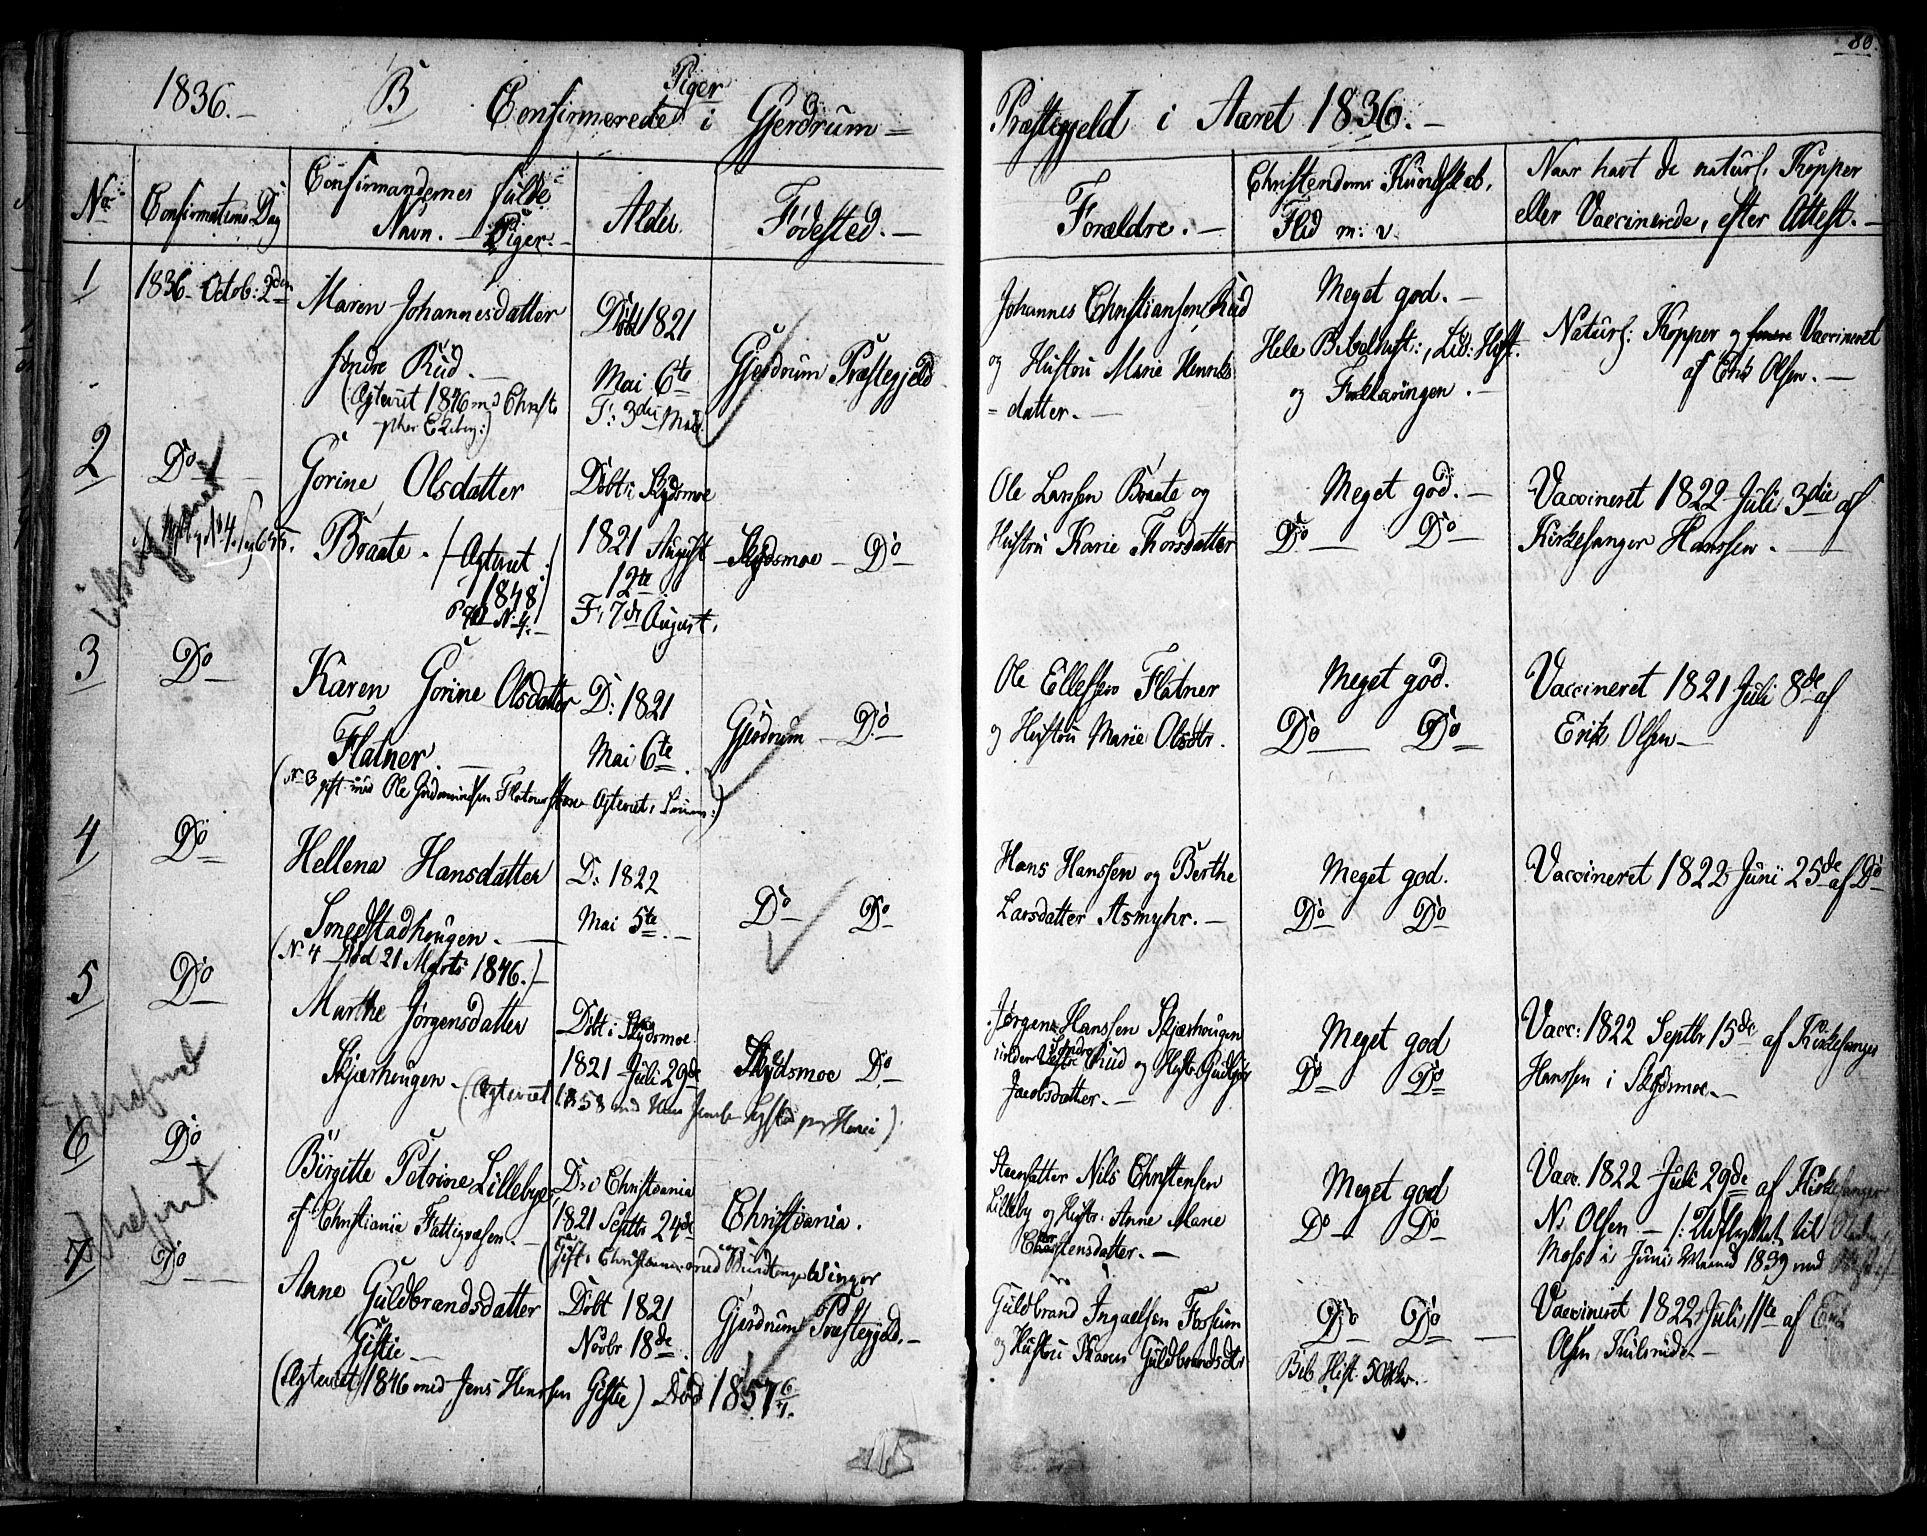 80.
1836.— B Confirmerede Piger i Gjerdrum= Præstegjeld i Aaret 1836.—
No Confirmations Dag Confirmandernes fulde Navn.— Piger.— Alder. Fødested.— Forældre.— Christendoms Kundskab, Flid m: v. Naar havt de naturl. Kopper eller Vaccinerede, efter Attest.—
1 1836 Octob: 2den
Maren Johannesdatter
søndre Rud.—
(Ægteviet 1846 md Christo
pher Ekeberg:)
Døbt 1821
Mai 6te
F: 3die Mai.
Gjerdrum Præstegjeld
Johannes Christiansen Rud
og Hustru Marie Henriks
=datter.—
Meget god.—
Hele Bibelhist:, Lid: Hist.
og Forklaringen.—
Naturl: Kopper og Vaccineret
af Erik Olsen.—
2 Do
Gorine Olsdatter
Braate. (Ægteviet
1848)
No 4.—
Døbt i Skydsmoe
1821 August
12te
F: 7de August.
Skydsmoe — Do
Ole Larssen Braate og
Hustru Karie Thorsdatter
Meget god.—
Do — Do —
Vaccineret 1822 Juli 3die af
Kirkesanger Hanssen.—
3 Do
Karen Gorine Olsdatter
Flatner.—
(No 3 gift med Ole Gudmundsen Flatner Ægteviet
D: 1821
Mai 6te.
Gjerdrum — Do
Ole Ellefsen Flatner
og Hustru Marie Olsdtr.
Meget god.
Do — Do
Vaccineret 1821 Juli 8de af
Erik Olsen—
4 Do
Hellena Hansdatter
Smedstadhougen.—
(No 4 Død 21 Marts 1846.)—
D: 1822
Mai 5te.—
Do Do
Hans Hanssen og Berthe
Larsdatter Asmyhr.—
Meget god.
Do Do
Vaccineret 1822 Juni 25de af Do
5 Do
Marthe Jørgensdatter
Skjærhougen.—
(Ægteviet 1858 med Hans
Døbt i Skydsmoe
1821 Juli 29de
Skydsmoe Do
Jørgen Hanssen Skjærhougen
under Søndre Rud og Hustr.
Jacobsdatter.—
Meget god
Do Do
Vacc: 1822 Septbr 15de af Kirkesanger
Hanssen i Skydsmoe.—
6 Do
Birgitte Petrine Lillebye
af Christiania Fattigvæsen.—
D: i Christiania
1821 Septbr 24de
Christiania.
(Gift i Christiania med Winger
Nils Christensen
Lilleby og Hustr: Anne Marie
Christensdatter.—
Meget god
Do Do
Vacc. 1822 Juli 29de af Kirkesanger
N: Olsen — (: Udflyttet til
Moss i Juni Maaned 1839 med
7 Do
Anne Guldbrandsdatter
Gistie—
(Ægteviet 1846 med Jens Hanssen Gistie) Død 1857
Døbt 1821
Novbr 18de.
Gjerdrum Præstegjeld.—
Guldbrand Ingvelsen Fossum
og Hustru Karen Guldbrandsdtr
Do Do
Bib. Hist.
Vaccineret 1822 Juli 11te af Erik
Olsen